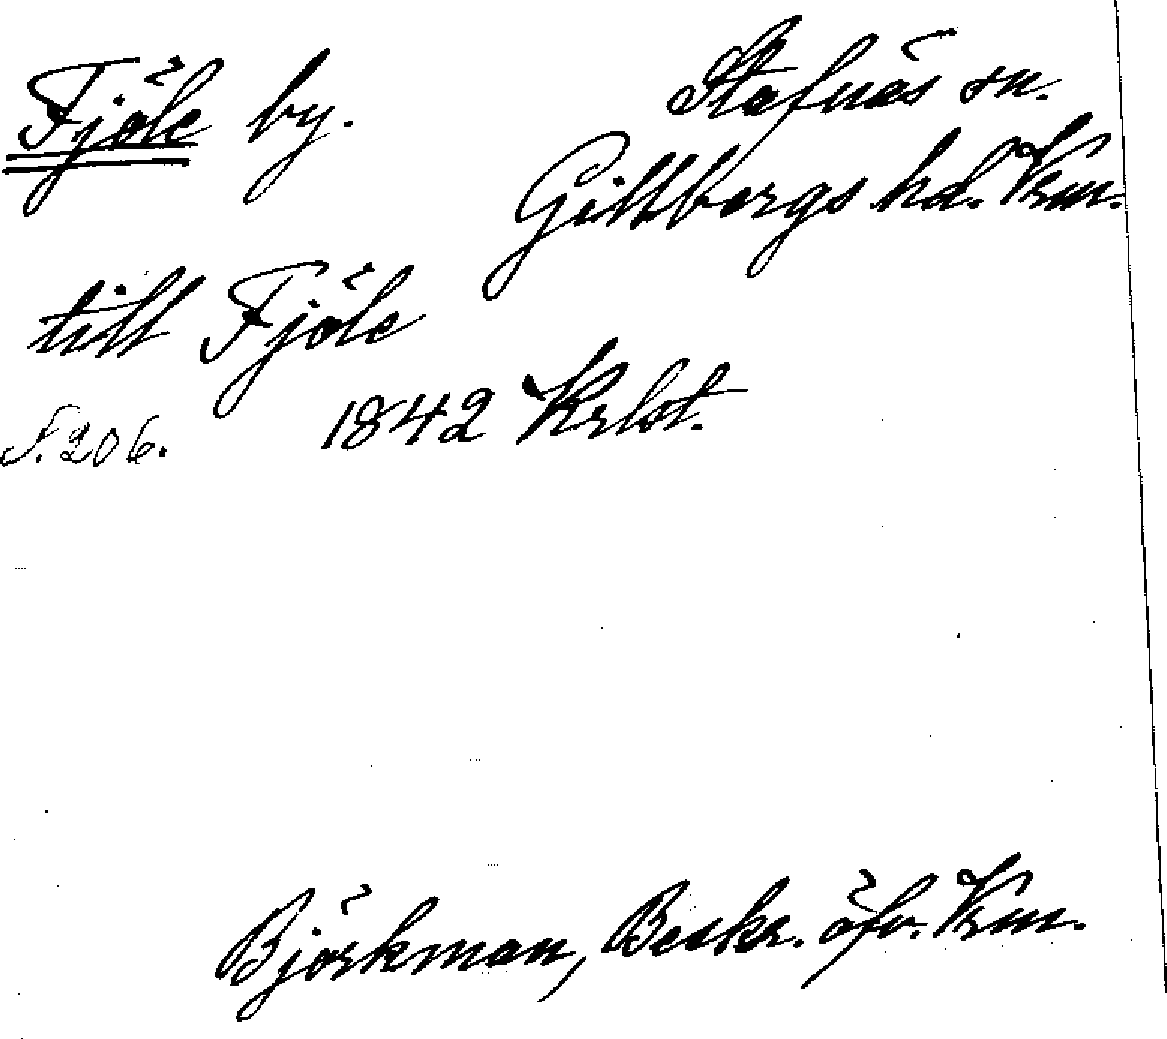 Fjöle by.
Stafnäs sn.
Gillbergs hd. Vrm.
till Fjöle
1842 Krlst.
S. 206.
Björkman, Beskr. öfv. Vrm.